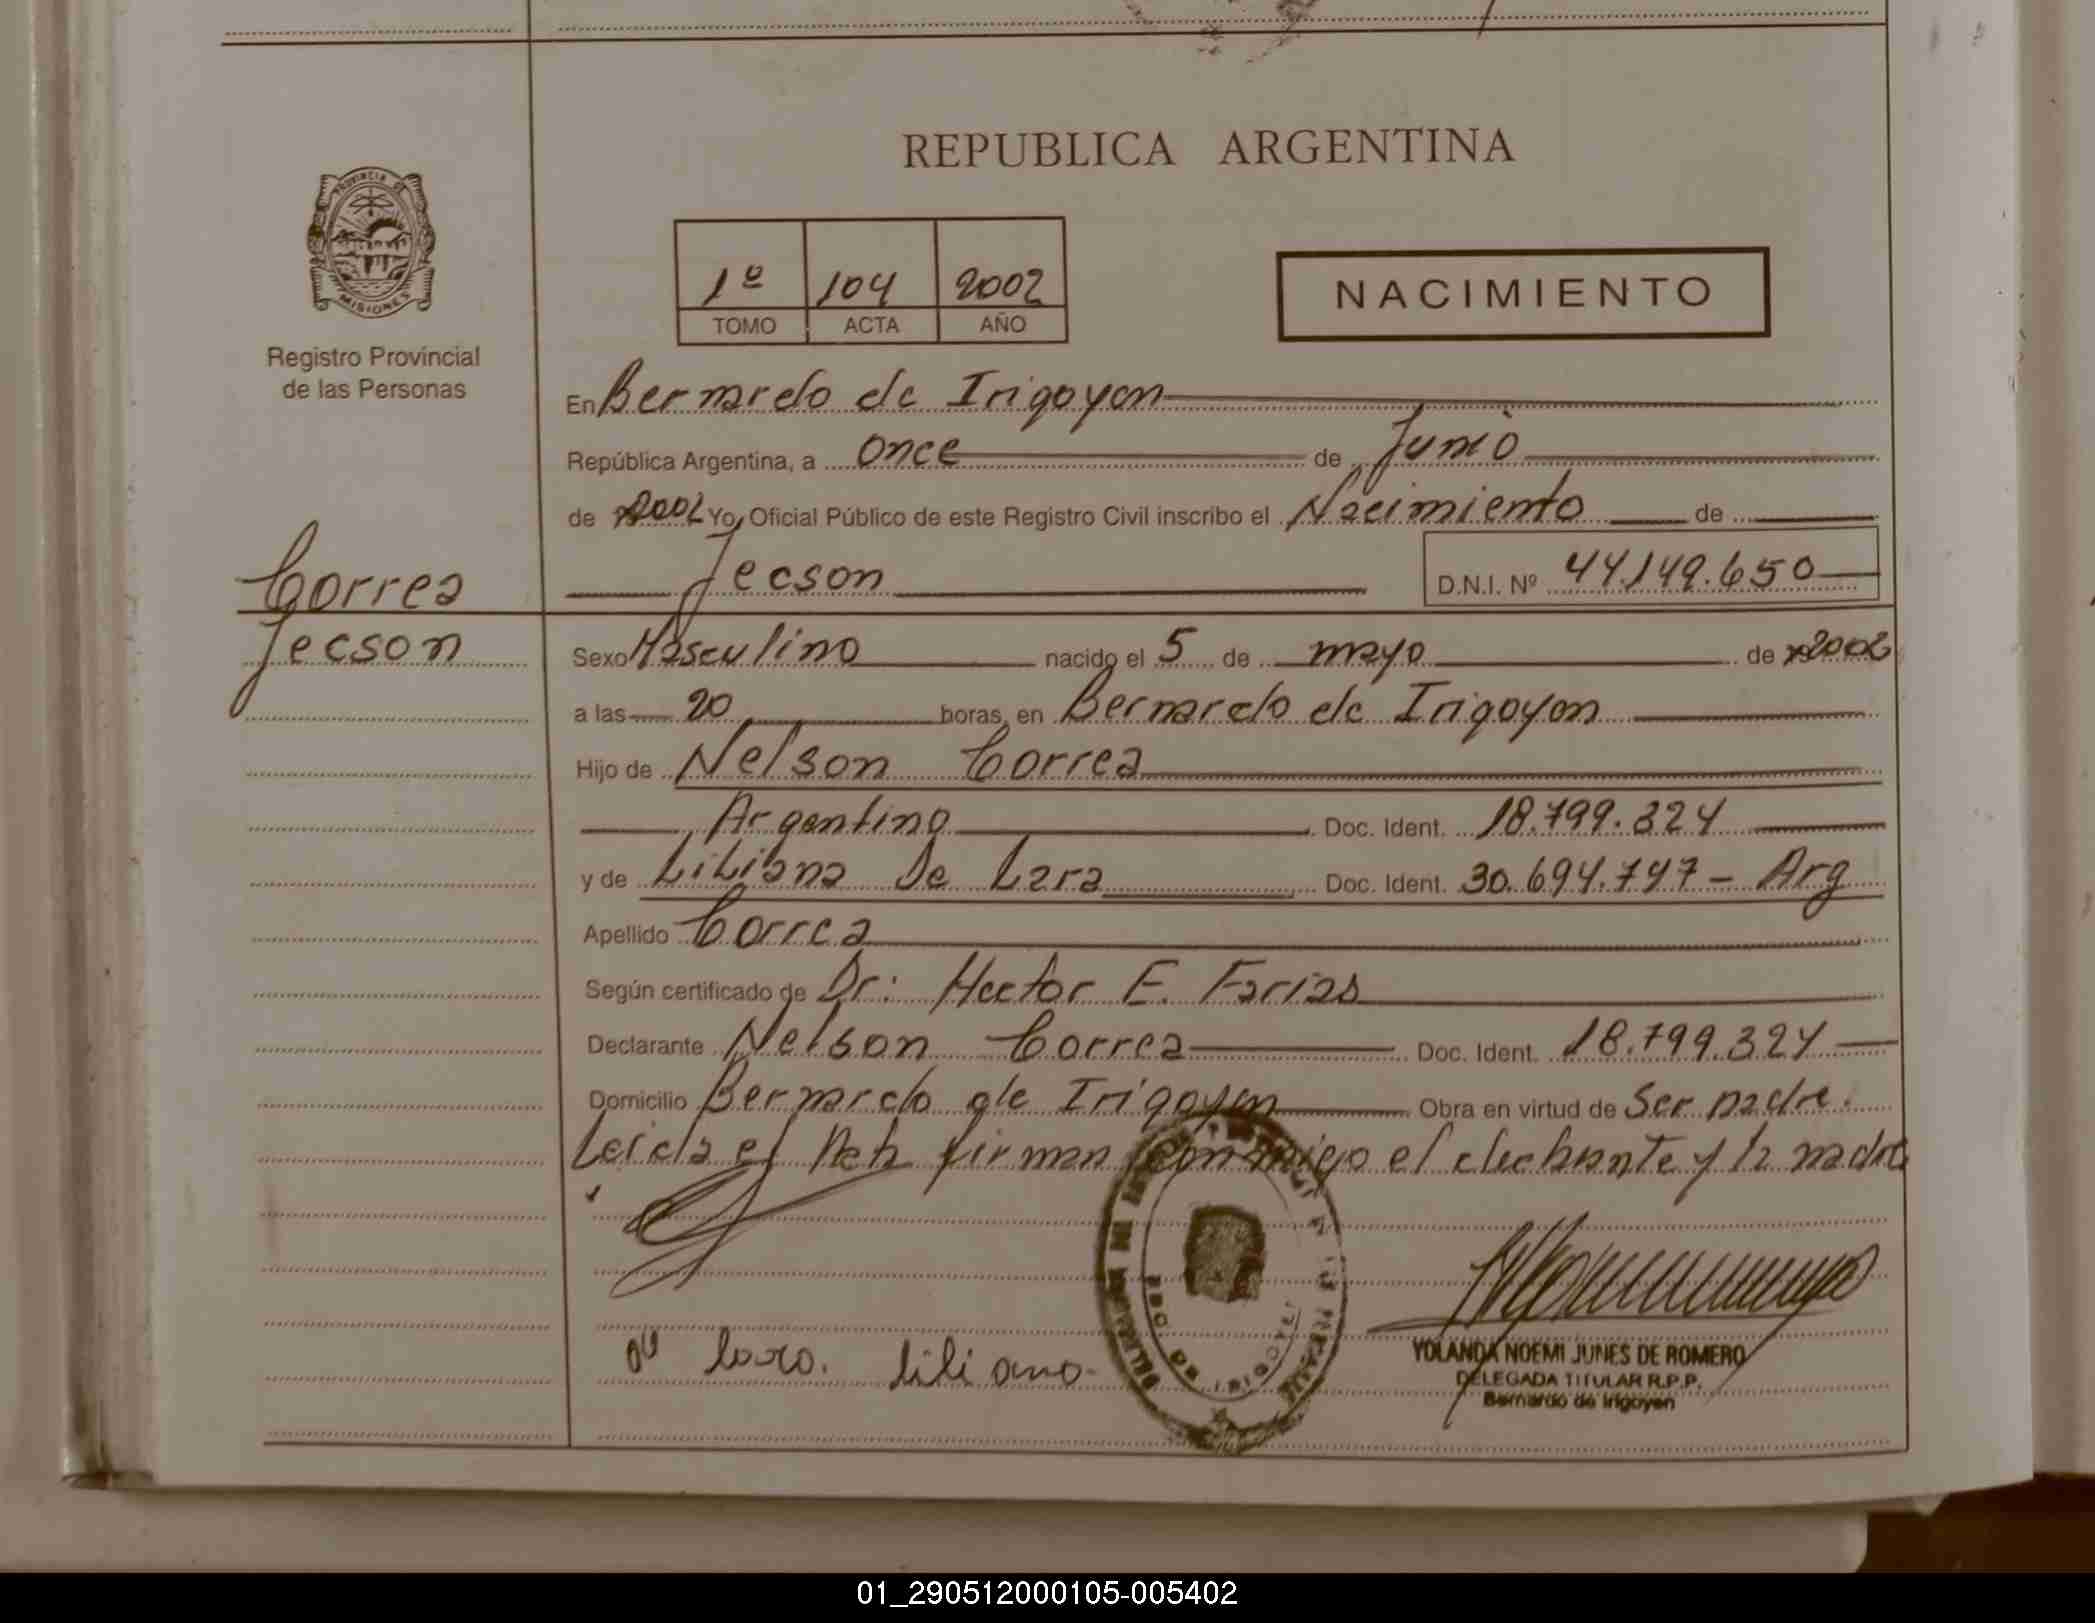 REPUBLICA ARGENTINA
PROVINCIA DE
MISIONES
Registro Provincial
de las Personas
1º 104 2002
TOMO ACTA AÑO
NACIMIENTO
En Bernardo de Irigoyen
República Argentina, a once de Junio
de 2002 Yo, Oficial Público de este Registro Civil inscribo el Nacimiento de
Jecson D.N.I. Nº 44.149.650
Correa
Jecson
Sexo Masculino nacido el 5 de mayo de 2002
a las 20 horas, en Bernardo de Irigoyen
Hijo de Nelson Correa
Argentino Doc. Ident. 18.799.324
y de Liliana De Lara Doc. Ident. 30.694.747 - Arg
Apellido Correa
Según certificado de Dr: Hector E. Farias
Declarante Nelson Correa Doc. Ident. 18.799.324
Domicilio Bernardo de Irigoyen Obra en virtud de Ser padre.
Leida el Acta firman conmigo el declarante y la madre
de lara. liliana
YOLANDA NOEMI JUNES DE ROMERO
DELEGADA TITULAR R.P.P.
Bernardo de Irigoyen
01_290512000105-005402